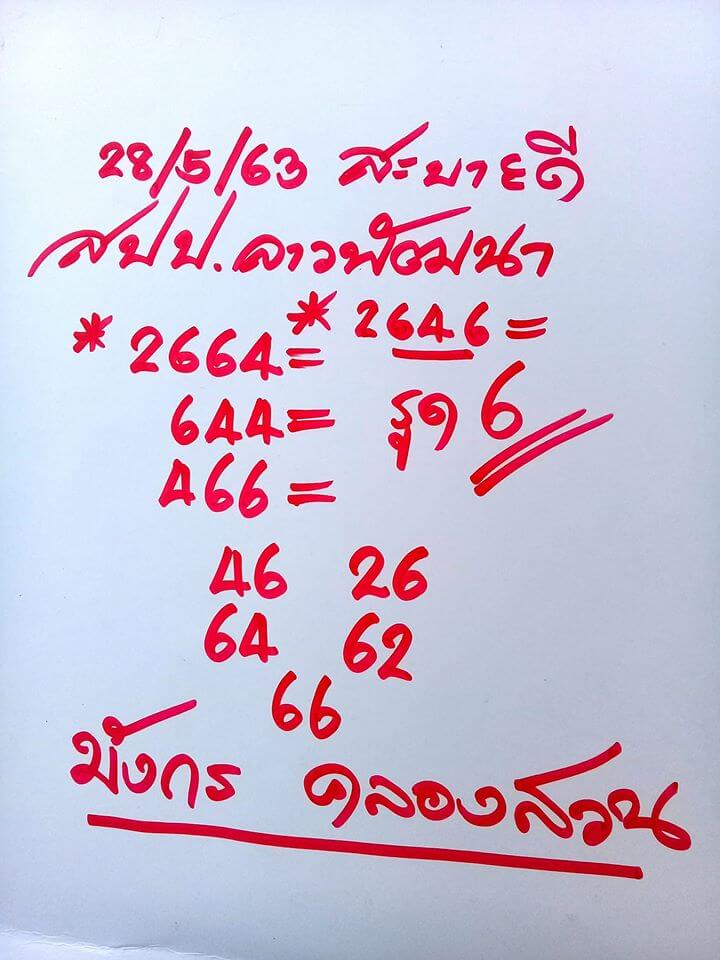 28/5/63 สะบายดี
สปป.ลาวพัฒนา
*2664= *2646=
644= รูด 6
466=
46 26
64 62
66
มังกร คลองสวน